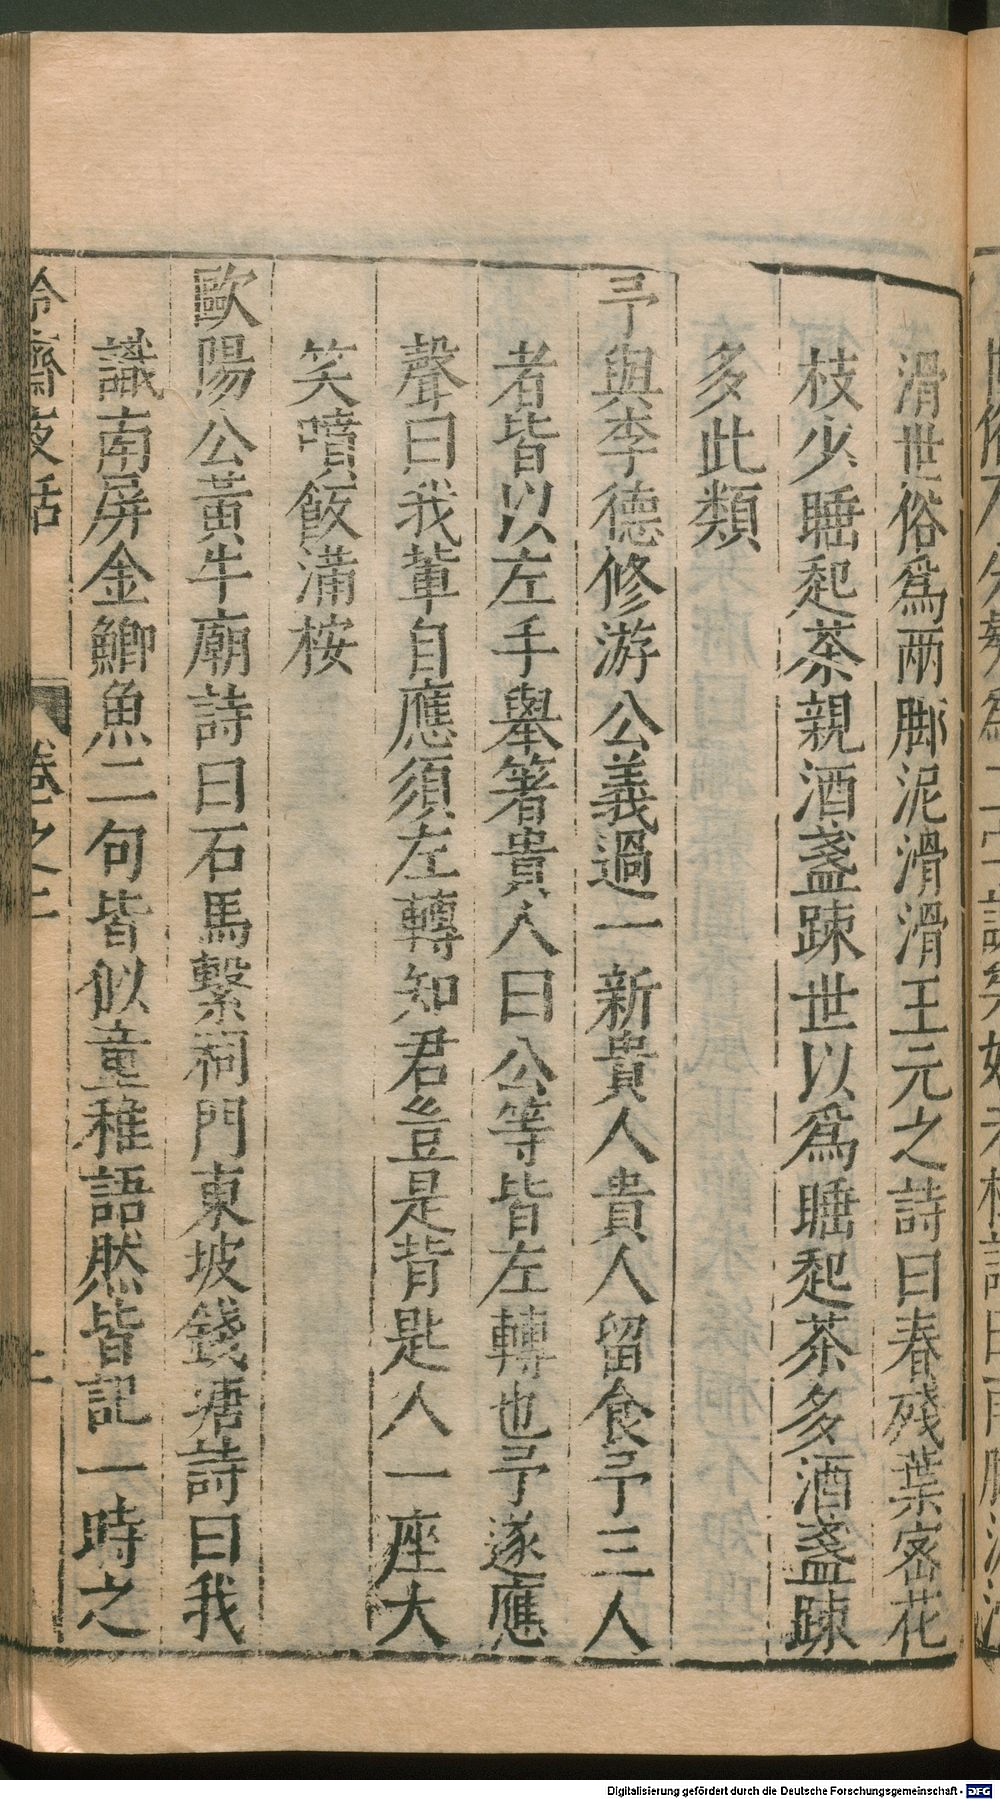 滑世俗爲兩脚泥滑滑王元之詩曰春殘葉宻花
枝少睡起茶親酒盞踈世以爲睡起茶多酒盞踈
多此類
予與李德修游公義過一新貴人貴人留食予三人
者皆以左手舉箸貴人曰公等皆左轉也予遂應
聲曰我輩自應須左轉知君豈是背匙人一座大
笑噴飯滿桉
歐陽公黃牛廟詩曰石馬繫祠門東坡錢塘詩曰我
識南屏金鯽魚二句皆似童稚語然皆記一時之
冷齋夜話 卷之二
Digitalisierung gefördert durch die Deutsche Forschungsgemeinschaft - DFG